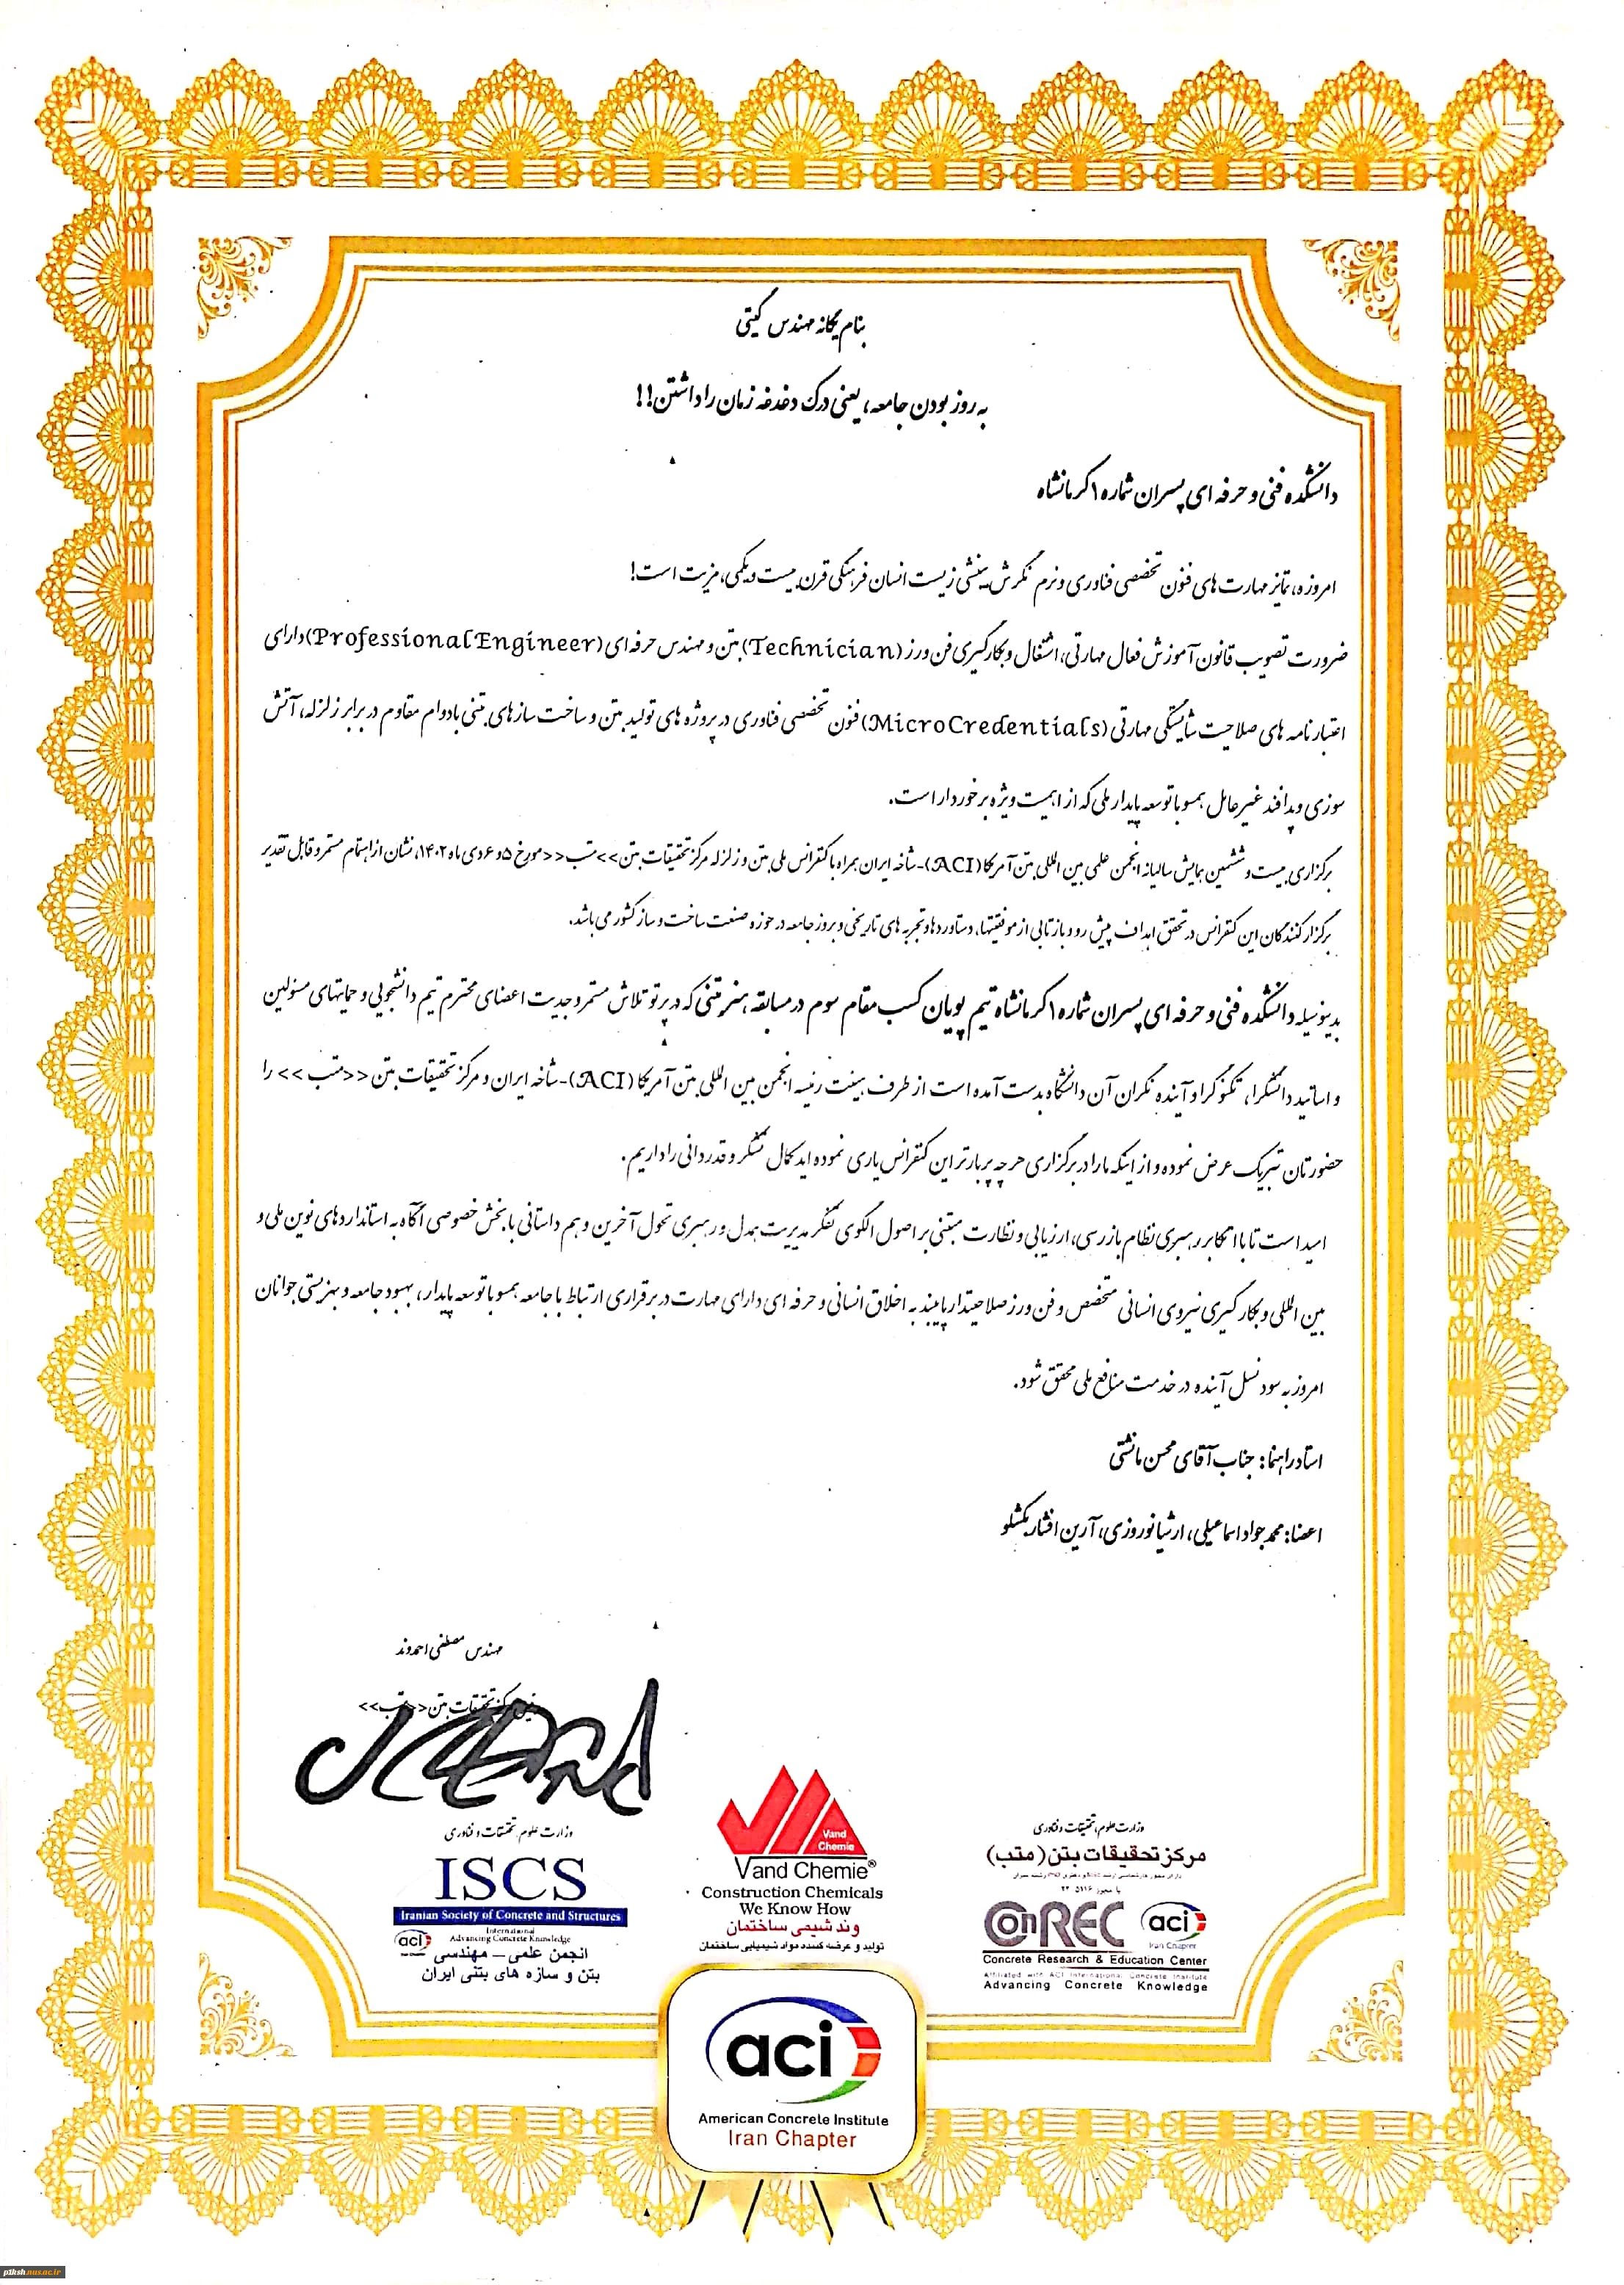 بنام یگانه مهندس گیتی
به روز بودن جامعه، یعنی درک دغدغه زمان را داشتن!!
دانشکده فنی و حرفه ای پسران شماره ۱ کرمانشاه
امروزه، تمایز مهارت های فنون تخصصی فناوری و نرم نگرش بینشی زیست انسان فرهنگی قرن بیست و یکمی، مزیت است!
ضرورت تصویب قانون آموزش فعال مهارتی، اشتغال و بکارگیری فن ورز (Technician) بتن و مهندس حرفه ای (Professional Engineer) دارای
اعتبارنامه های صلاحیت شایستگی مهارتی (MicroCredentials) فنون تخصصی فناوری در پروژه های تولید بتن و ساخت سازهای بتنی بادوام مقاوم در برابر زلزله، آتش
سوزی و پدافند غیرعامل همسو با توسعه پایدار ملی که از اهمیت ویژه برخوردار است.
برگزاری بیست و ششمین همایش سالیانه انجمن علمی بین المللی بتن آمریکا (ACI)-شاخه ایران همراه با کنفرانس ملی بتن و زلزله مرکز تحقیقات بتن >>متب<< مورخ ۵ و ۶ دی ماه ۱۴۰۲، نشان از اهتمام مستمر و قابل تقدیر
برگزار کنندگان این کنفرانس در تحقق اهداف پیش رو و بازتابی از موفقیتها، دستاوردها و تجربه های تاریخی و بروز جامعه در حوزه صنعت ساخت و ساز کشور می باشد.
بدینوسیله دانشکده فنی و حرفه ای پسران شماره ۱ کرمانشاه تیم پویان کسب مقام سوم در مسابقه هنر بتنی که در پرتو تلاش مستمر و جدیت اعضای محترم تیم دانشجویی و حمایتهای مسئولین
و اساتید دانشگرا، تکنوگرا و آینده نگران آن دانشگاه بدست آمده است از طرف هیئت رئیسه انجمن بین المللی بتن آمریکا (ACI)-شاخه ایران و مرکز تحقیقات بتن <<متب>> را
حضورتان تبریک عرض نموده و از اینکه ما را در برگزاری هرچه پربارتر این کنفرانس یاری نموده اید کمال تشکر و قدردانی را داریم.
امید است تا با اتکا بر رهبری نظام بازرسی، ارزیابی و نظارت مبتنی بر اصول الگوی تفکر مدیریت همدل و رهبری تحول آخرین و هم داستانی با بخش خصوصی آگاه به استانداردهای نوین ملی و
بین المللی و بکارگیری نیروی انسانی متخصص و فن ورز صلاحیتدار پایبند به اخلاق انسانی و حرفه ای دارای مهارت در برقراری ارتباط با جامعه همسو با توسعه پایدار، بهبود جامعه و بهزیستی جوانان
امروز به سود نسل آینده در خدمت منافع ملی محقق شود.
استاد راهنما: جناب آقای محسن مانشتی
اعضا: محمد جواد اسماعیلی، ارشیا نوروزی، آرین افشار یکشلو
مهندس مصطفی احمدوند
مرکز تحقیقات بتن <<متب>>
وزارت علوم، تحقیقات و فناوری
ISCS
Iranian Society of Concrete and Structures
International
Advancing Concrete Knowledge
aci
انجمن علمی – مهندسی
بتن و سازه های بتنی ایران
Vand
Chemie
Vand Chemie®
Construction Chemicals
We Know How
وند شیمی ساختمان
تولید و عرضه کننده مواد شیمیایی ساختمان
وزارت علوم، تحقیقات و فناوری
مرکز تحقیقات بتن (متب)
ConREC
aci
Iran Chapter
Concrete Research & Education Center
Affiliated with ACI International Concrete Institute
Advancing Concrete Knowledge
aci
American Concrete Institute
Iran Chapter
p1ksh.nus.ac.ir